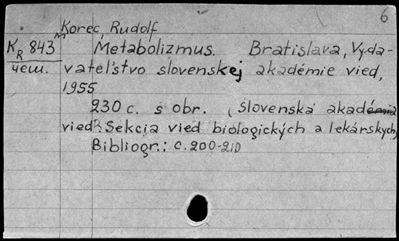 6
Korec, Rudolf
KR 843 Metabolizmus. Bratislava, Vyda-
чеш. vateľstvo slovenskej akadémie vied,
1955
230 c. s obr. (Slovenská akadémia
vied. Sekcia vied biologických a lekárskych)
Bibliogr.: c. 200-210